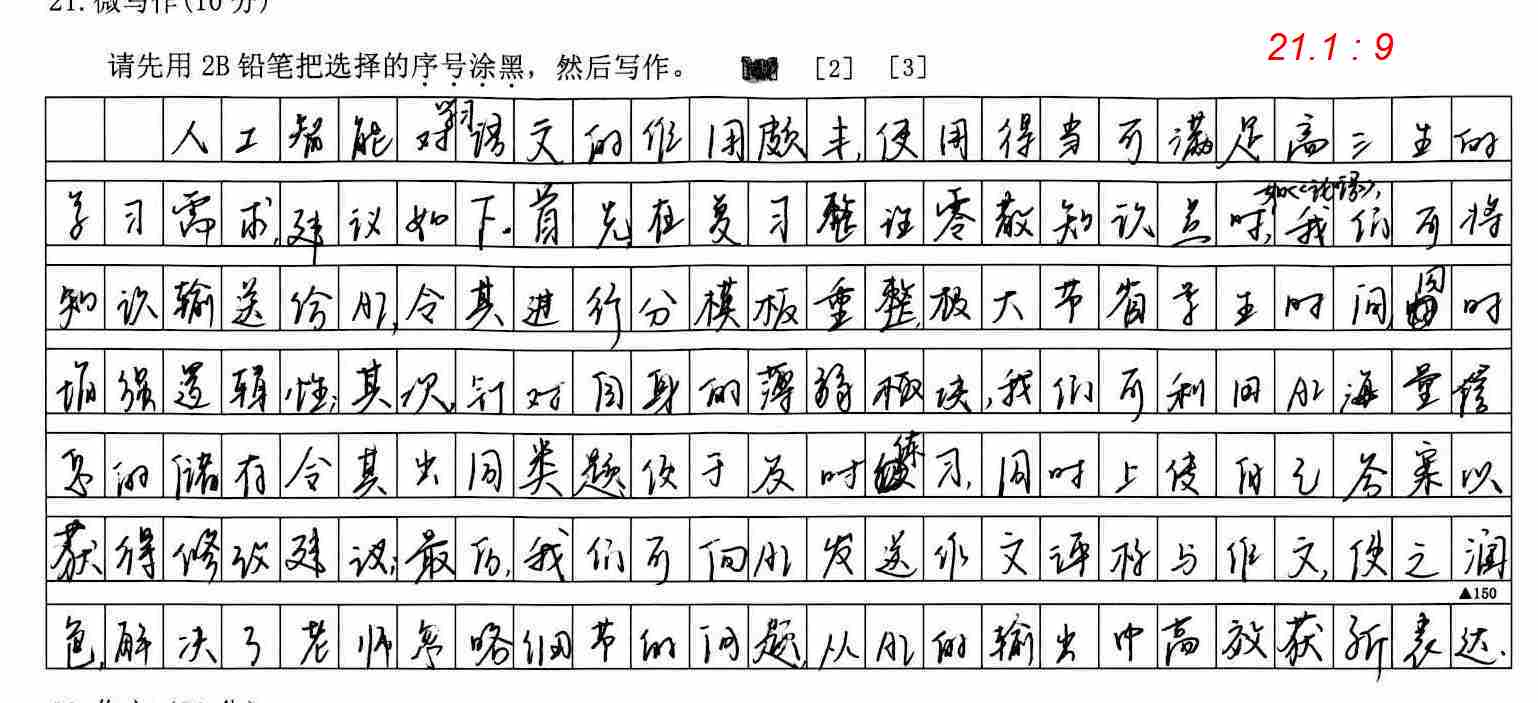 21.微写作(10分)
请先用 2B 铅笔把选择的序号涂黑，然后写作。 [2] [3]
21.1 : 9
人工智能对学习语文的作用颇丰,使用得当可满足高三生的
学习需求,建议如下。首先,在复习整理零散知识点时,如《论语》,我们可将
知识输送给AI,令其进行分模板重整,极大节省学生时间,同时
增强逻辑性;其次,针对自身的薄弱板块,我们可利用AI海量信
息的储存令其出同类题,便于及时练习,同时上传自己答案以
获得修改建议;最后,我们可向AI发送作文评标与作文,使之润
▲150
色,解决了老师忽略细节的问题,从AI的输出中高效获新表达.